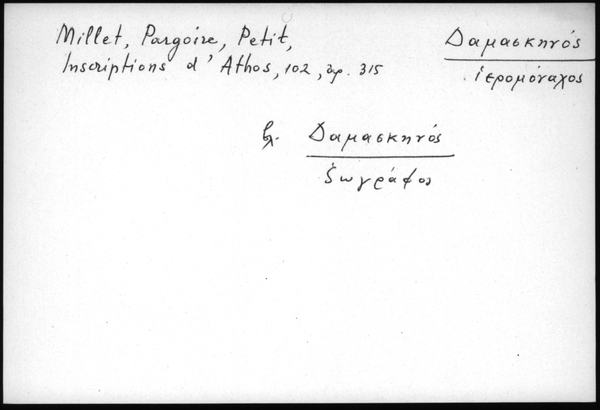 Millet, Pargoire, Petit,
Inscriptions d'Athos, 102, ἀρ. 315
Δαμασκηνός
ἱερομόναχος
βλ. Δαμασκηνός
ζωγράφος